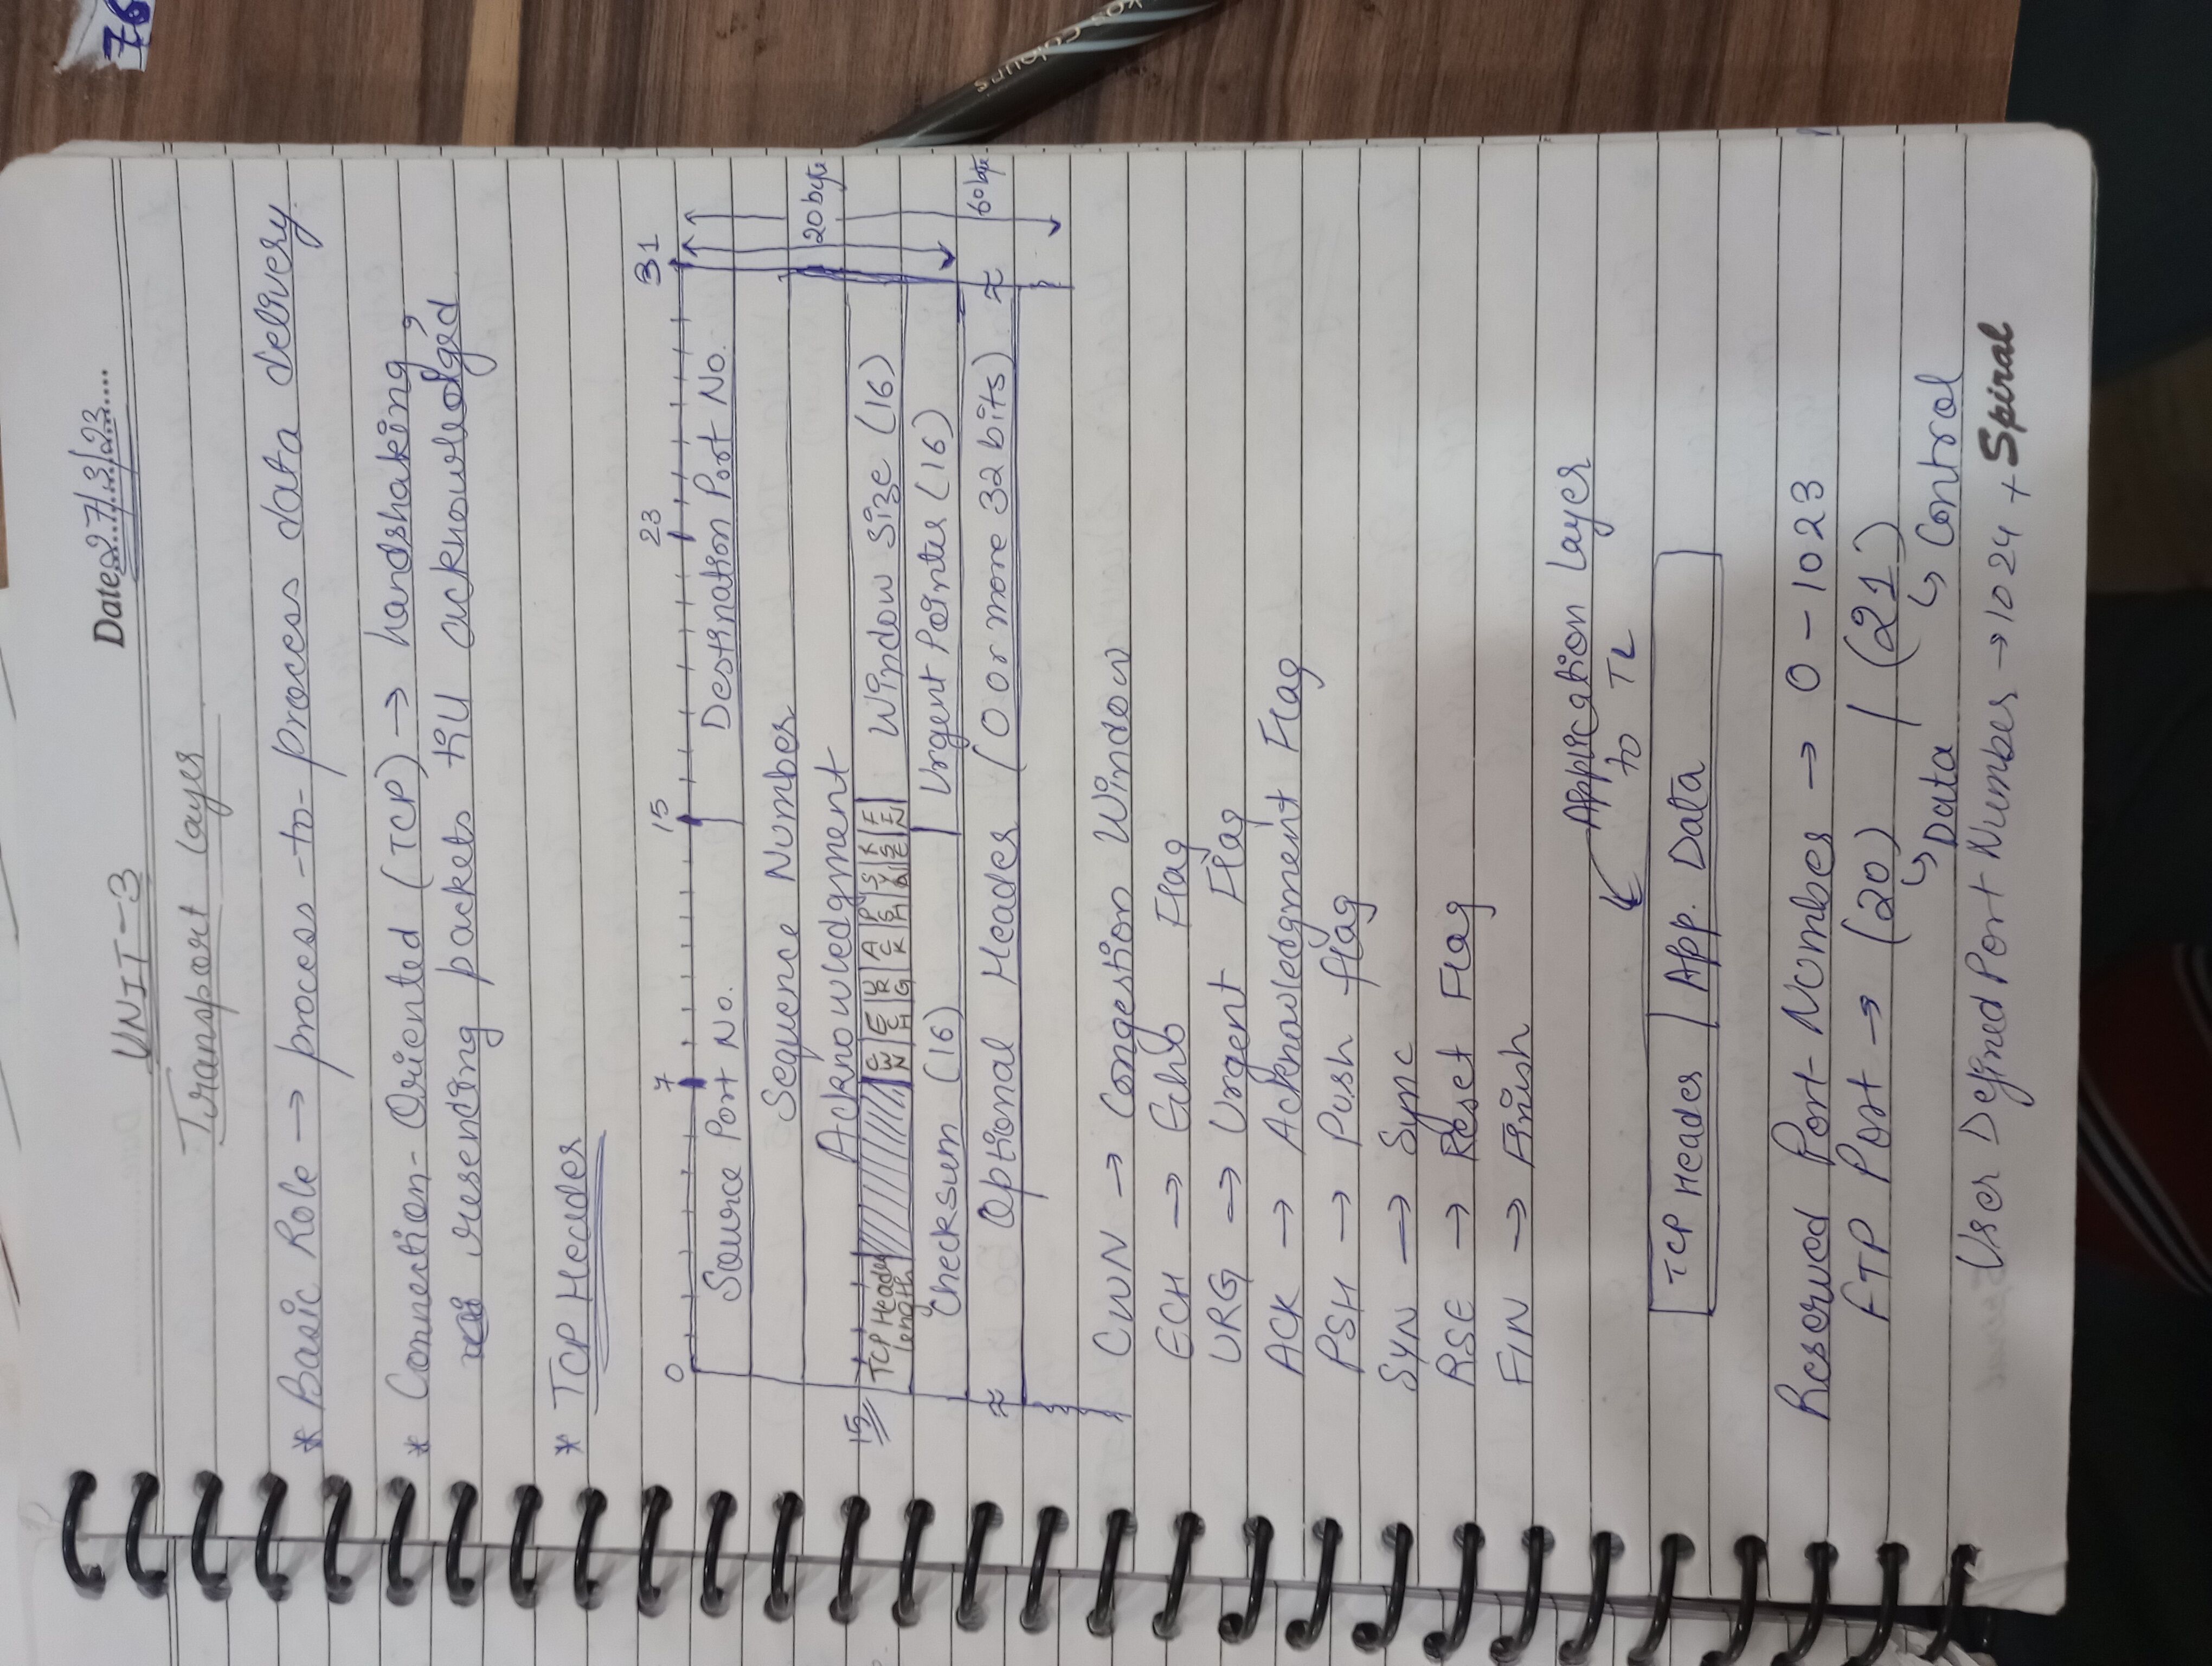 76
Colours
Date 27/3/23
UNIT-3
Transport Layer
* Basic Role → process-to-process data delivery
* Connection-Oriented (TCP) → handshaking,
resending packets till acknowledged
* TCP Header
0 7 15 23 31
Source Port No. Destination Port No.
Sequence Number
20 byte
Acknowledgment
15 TCP Header length CWN ECH URG ACK PSH SYN RSE FIN Window Size (16)
Checksum (16) Urgent Pointer (16)
Optional Header (0 or more 32 bits)
60 byte
CWN → Congestion Window
ECH → Echo Flag
URG → Urgent Flag
ACK → Acknowledgment Flag
PSH → Push flag
SYN → Sync
RSE → Reset Flag
FIN → Finish
Application Layer
to TL
TCP Header | App. Data
Reserved Port-Number → 0-1023
FTP Port → (20) / (21)
↳ Data ↳ Control
User Defined Port Number → 1024 +
Spiral